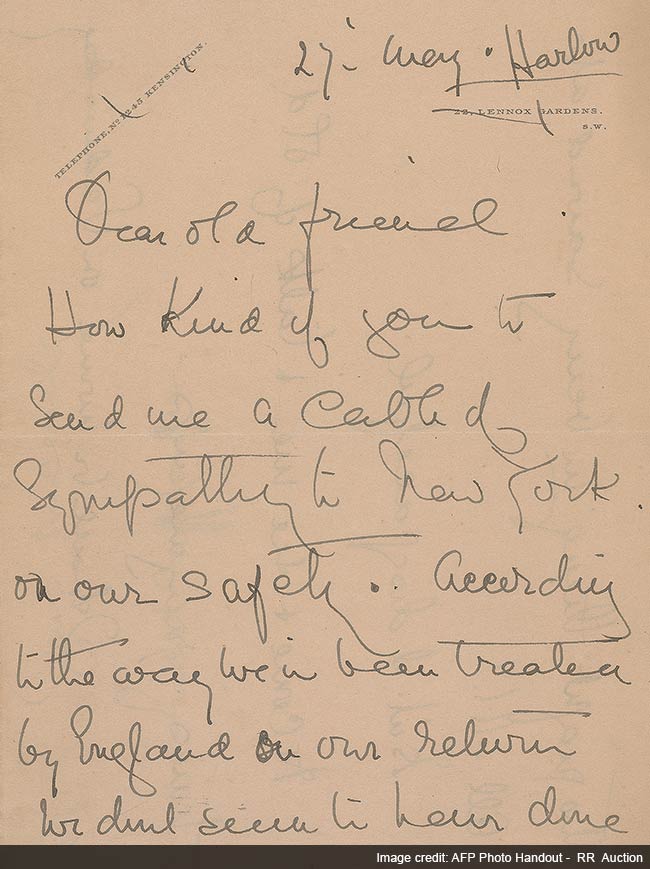 27th May. Harlow
TELEPHONE, No 1243 KENSINGTON.
22, LENNOX GARDENS.
S.W.
Dear old friend.
How kind of you to
send me a cable of
sympathy to New York.
on our safety. . According
to the way we've been treated
by England on our return
we didnt seem to have done
Image credit: AFP Photo Handout - RR Auction